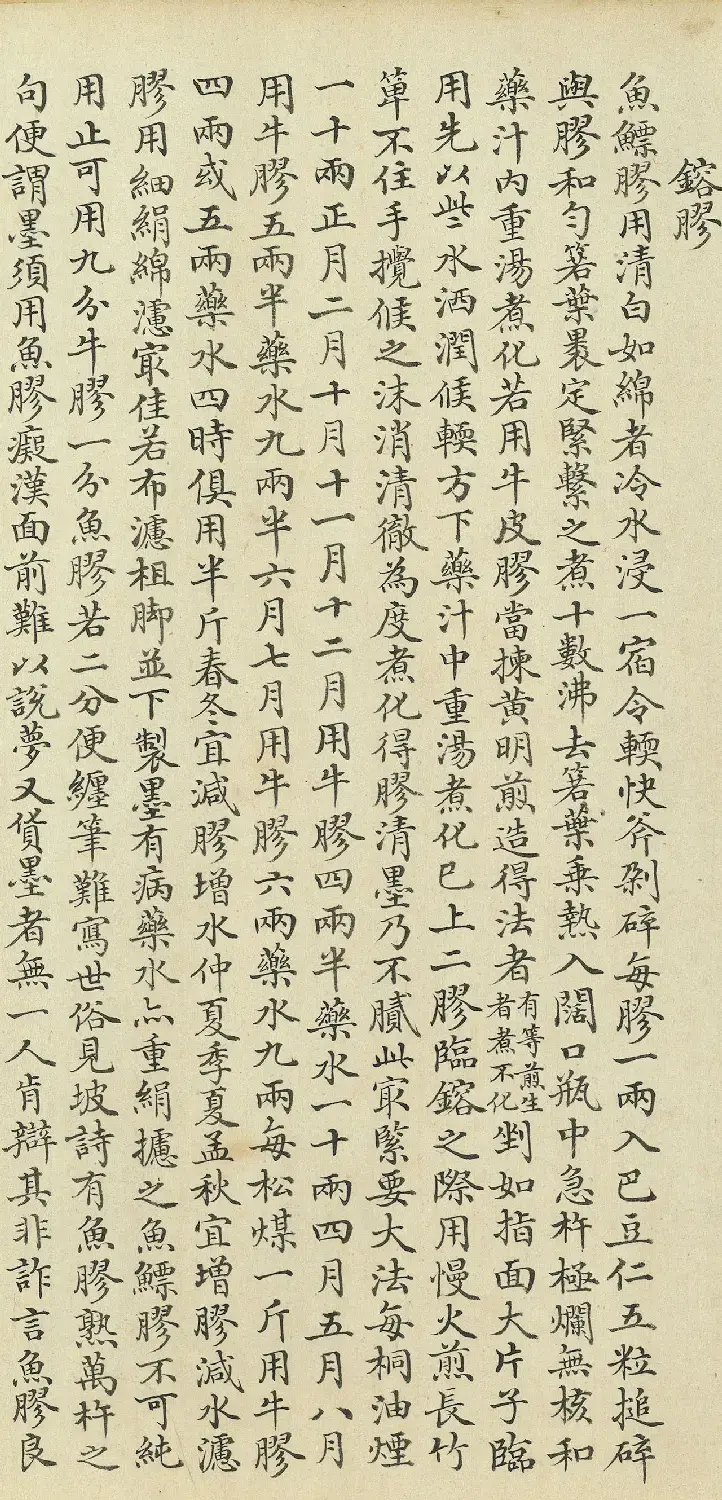 鎔膠
魚鰾膠用清白如綿者冷水浸一宿令輭快斧剁碎每膠一兩入巴豆仁五粒搥碎
與膠和勻箬葉裹定緊繫之煮十數沸去箬葉乗熱入闊口瓶中急杵極爛無核和
藥汁内重湯煮化若用牛皮膠當揀黄明煎造得法者有等煎生者煮不化剉如指面大片子臨
用先以些水洒潤候輭方下藥汁中重湯煮化已上二膠臨鎔之際用慢火煎長竹
箄不住手攪候之沫消清徹為度煮化得膠清墨乃不膩此㝡緊要大法每桐油煙
一十兩正月二月十月十一月十二月用牛膠四兩半藥水一十兩四月五月八月
用牛膠五兩半藥水九兩半六月七月用牛膠六兩藥水九兩每松煤一斤用牛膠
四兩或五兩藥水四時俱用半斤春冬宜減膠增水仲夏季夏孟秋宜增膠減水濾
膠用細絹綿濾㝡佳若布濾柤脚並下製墨有病藥水亦重絹攄之魚鰾膠不可純
用止可用九分牛膠一分魚膠若二分便纏筆難寫世俗見坡詩有魚膠熟萬杵之
句便謂墨須用魚膠癡漢面前難以說夢又貨墨者無一人肯辯其非詐言魚膠良